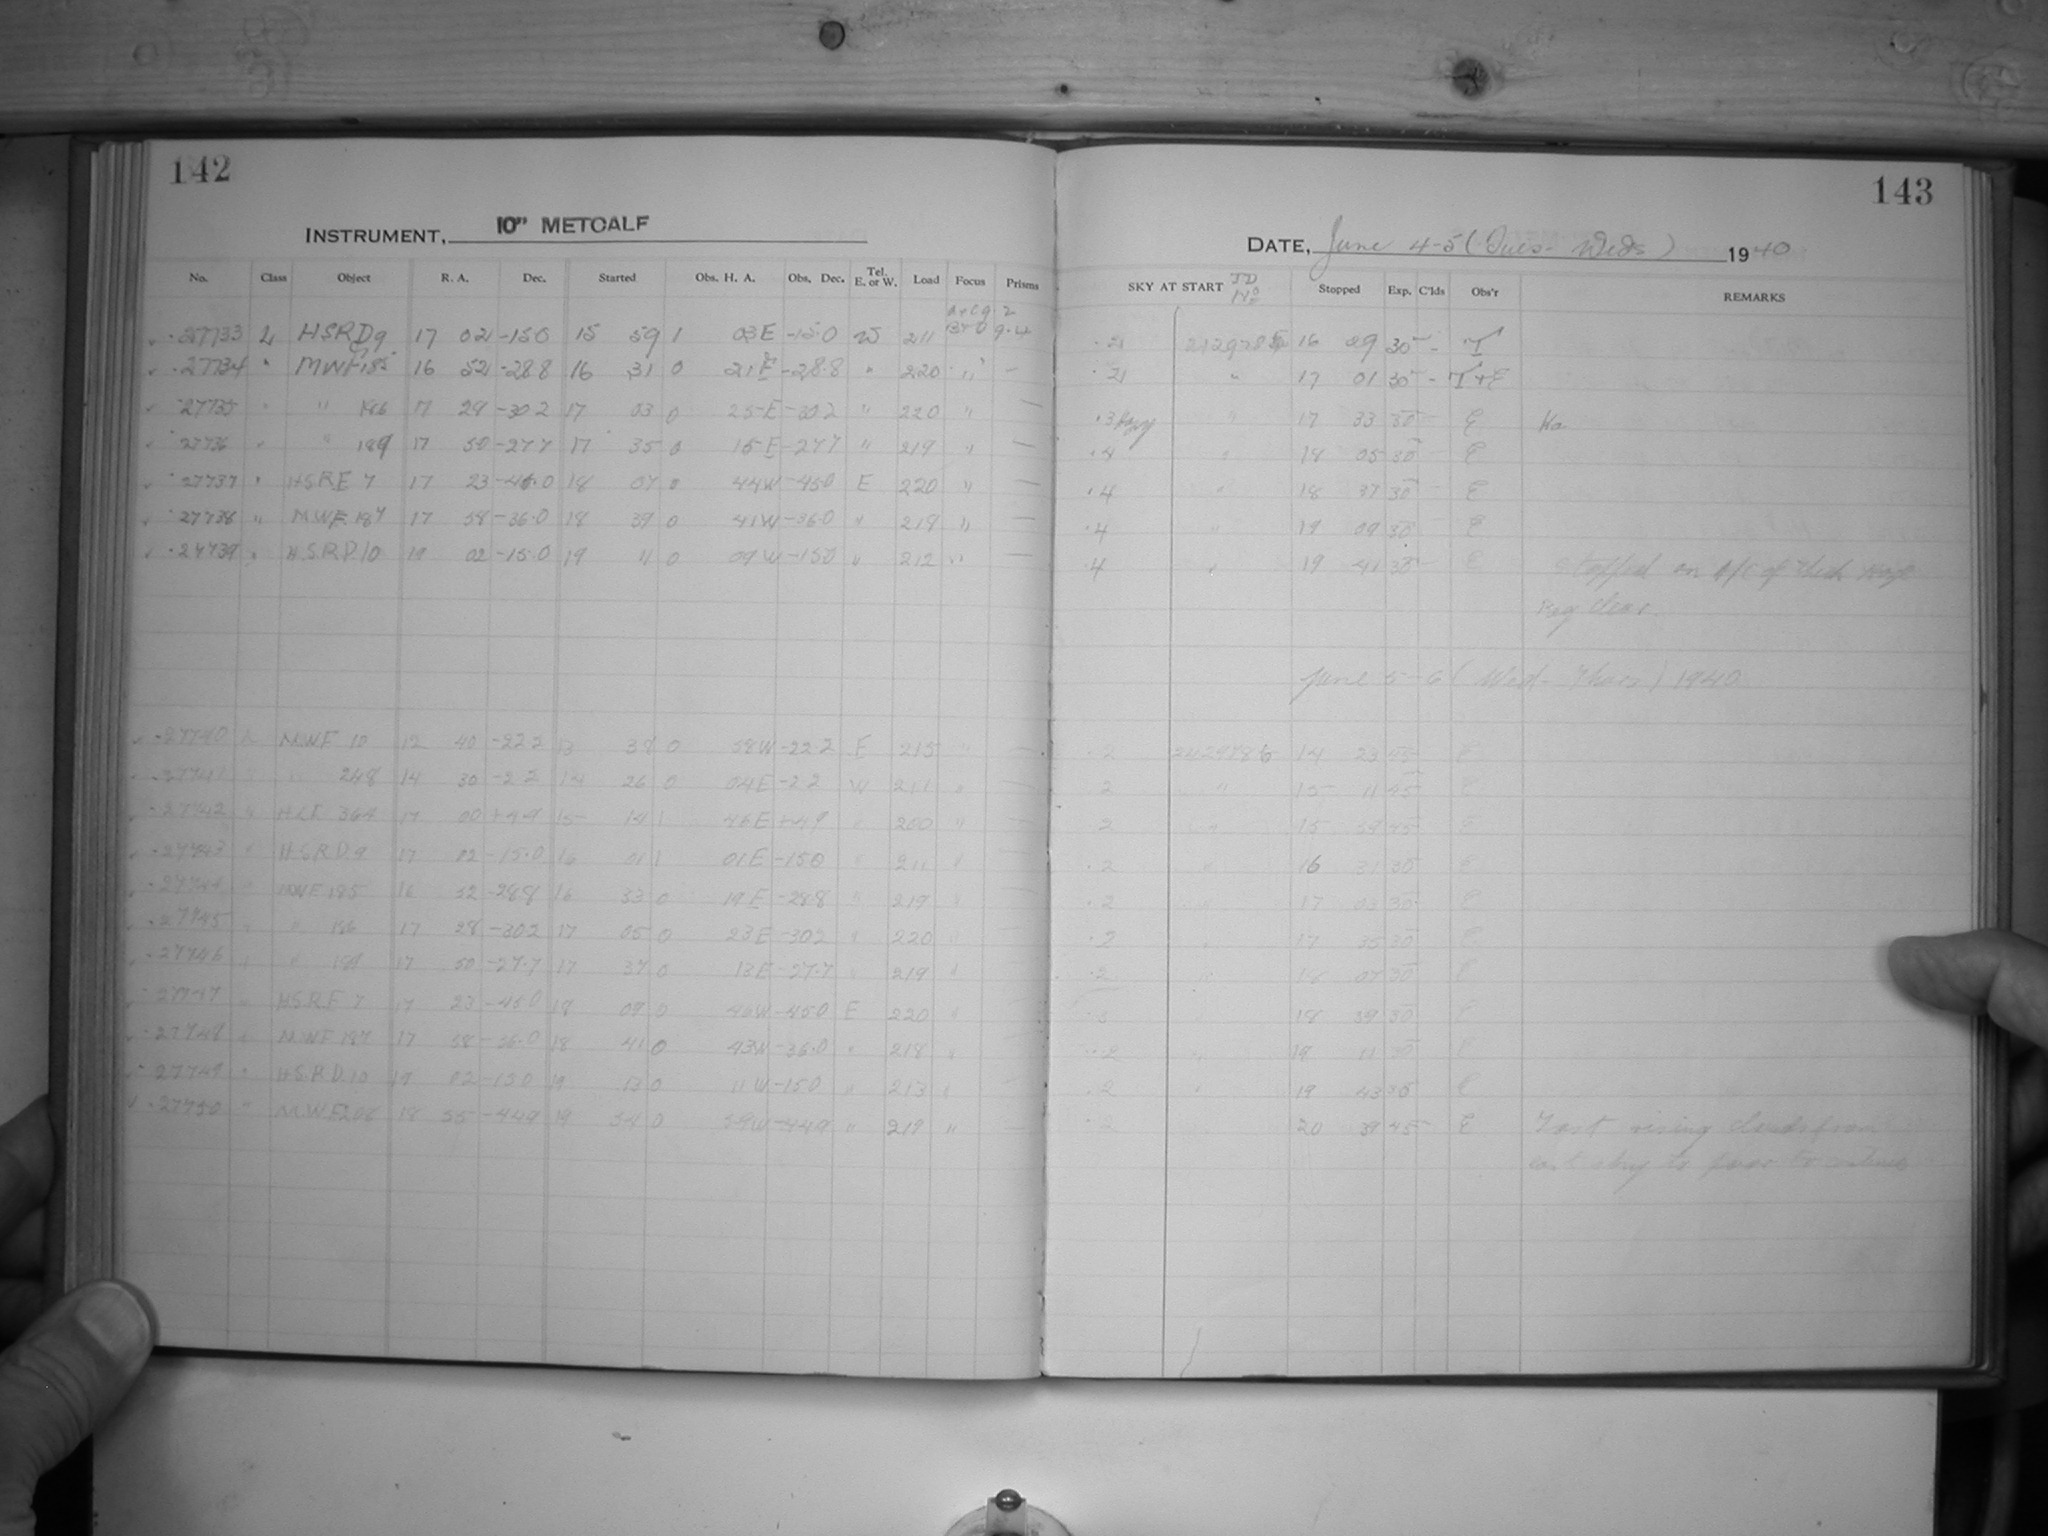 142
INSTRUMENT, 10" METCALF
No. Class Object R. A. Dec. Started Obs. H. A. Obs. Dec. Tel. E. or W. Load Focus Prisms
27733 L HSRD9 17 02 -15.0 15 59 1 03E -15.0 W 211
27734 " MWF185 16 52 -28.8 16 31 0 21E -28.8 " 220 " —
27735 " " 186 17 28 -30.2 17 03 0 25E -30.2 " 220 " —
27736 " " 189 17 50 -27.7 17 35 0 15E -27.7 " 219 " —
27737 " HSRE 7 17 23 -45.0 18 07 0 44W -45.0 E 220 " —
27738 " MWF 187 17 58 -36.0 18 39 0 41W -36.0 " 218 " —
27739 " HSRD.10 19 02 -15.0 19 11 0 09W -15.0 " 212 " —
27740 MWF 10 12 40 -22.2 13 38 0 58W -22.2 E 215 " —
27741 " 248 14 30 -2.2 14 26 0 04E -2.2 W 211 " —
27742 " 17 00 15 14 1 46E " 200 " —
27743 " HSRD.9 17 02 -15.0 16 01 1 01E -15.0 " 211 " —
27744 " MWF 185 16 52 -28.8 16 33 0 19E -28.8 " 219 " —
27745 " " 186 17 28 -30.2 17 05 0 23E -30.2 " 220 " —
27746 " " 189 17 50 -27.7 17 37 0 13E -27.7 " 219 " —
27747 " HSRE 7 17 23 -45.0 18 09 0 46W -45.0 E 220 " —
27748 " MWF 187 17 58 -36.0 18 41 0 43W -36.0 " 218 " —
27749 " HSRD.10 19 02 -15.0 19 13 0 11W -15.0 " 213 " —
27750 " MWF208 18 55 -44.9 19 54 0 59W -44.9 " 219 " —
143
DATE, June 4-5 (Tues-Weds) 1940
SKY AT START JD No Stopped Exp. C'lds Obs'r REMARKS
16 29 30 - T
" 17 01 30 - T+E
.3 hazy " 17 33 30 - E Ha
.4 " 18 05 30 - E
.4 " 18 37 30 - E
.4 " 19 09 30 - E
.4 " 19 41 30 - E Stopped on A/C of thick haze
June 5-6 (Wed-Thurs) 1940
.2 2429786 14 23 45 E
.2 " 15 11 45 E
.2 " 15 59 45 E
.2 " 16 31 30 E
.2 " 17 03 30 E
.2 " 17 35 30 E
.2 " 18 07 30 E
" 18 39 30 E
.2 " 19 11 30 E
.2 " 19 43 30 E
.2 20 39 45 E Fast rising clouds from
east to poor to continue